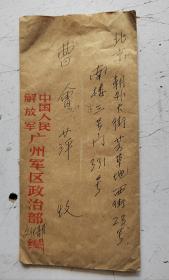 北京朝外大街芳草地西街23号
南楼三门331号
曹
萍 收
中国人民
解放军广州军区政治部缄